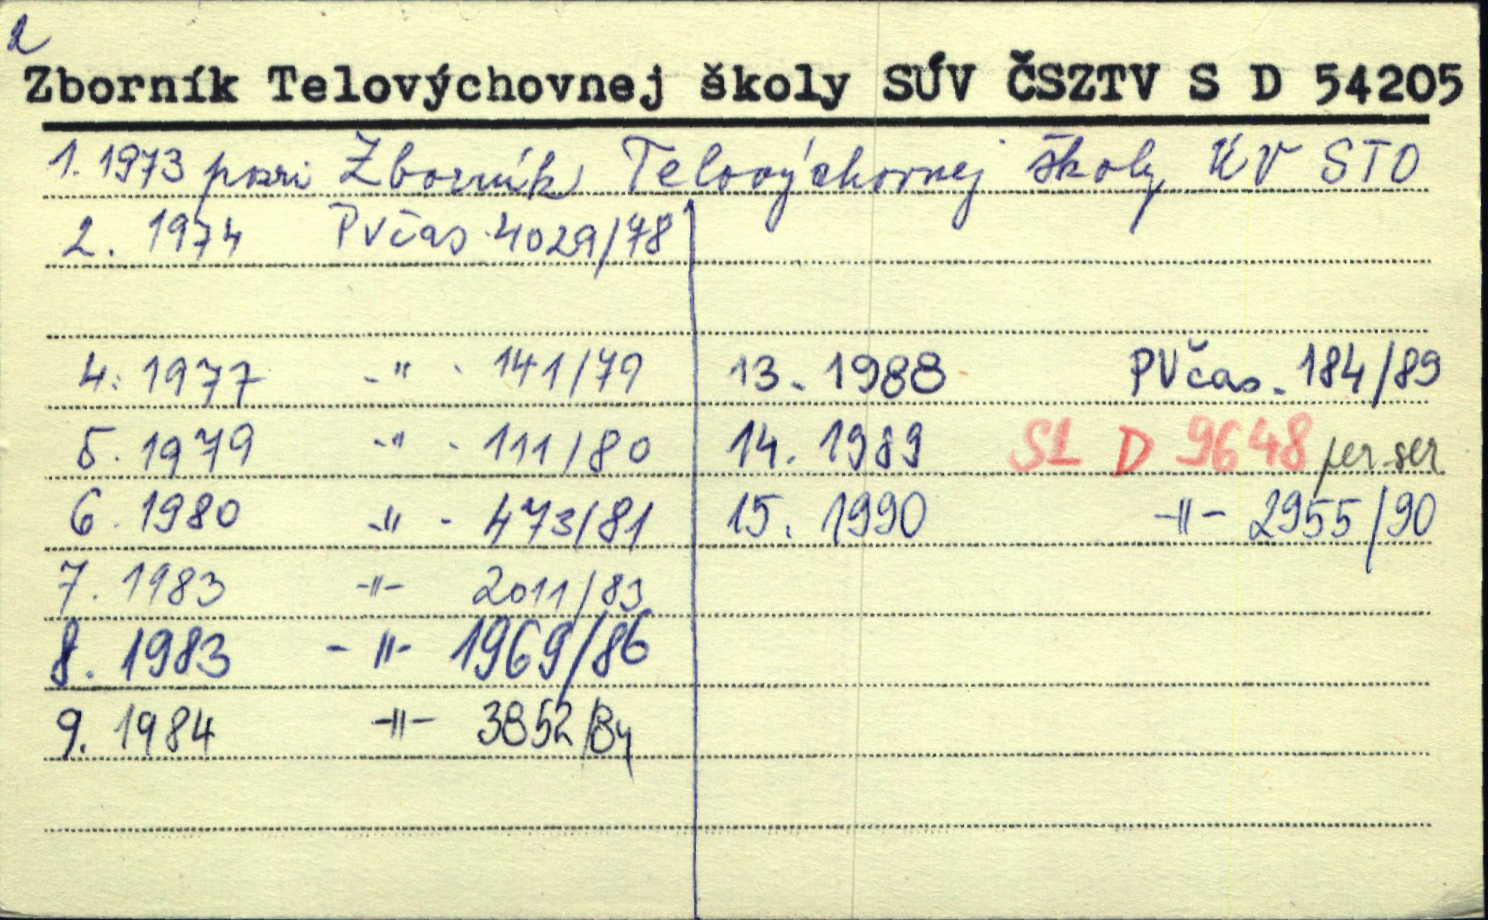 2
Zborník Telovýchovnej školy SÚV ČSZTV S D 54205
1. 1973 pozri Zborník Telovýchovnej školy KV STO
2. 1974 PVčas. 4029/78
4. 1977 -"- 141/79
5. 1979 -"- 111/80
6. 1980 -"- 473/81
7. 1983 -"- 2011/83
8. 1983 -"- 1969/86
9. 1984 -"- 3852/84
13. 1988 PVčas. 184/89
14. 1989 SL D 9648 per. ser
15. 1990 -"- 2955/90